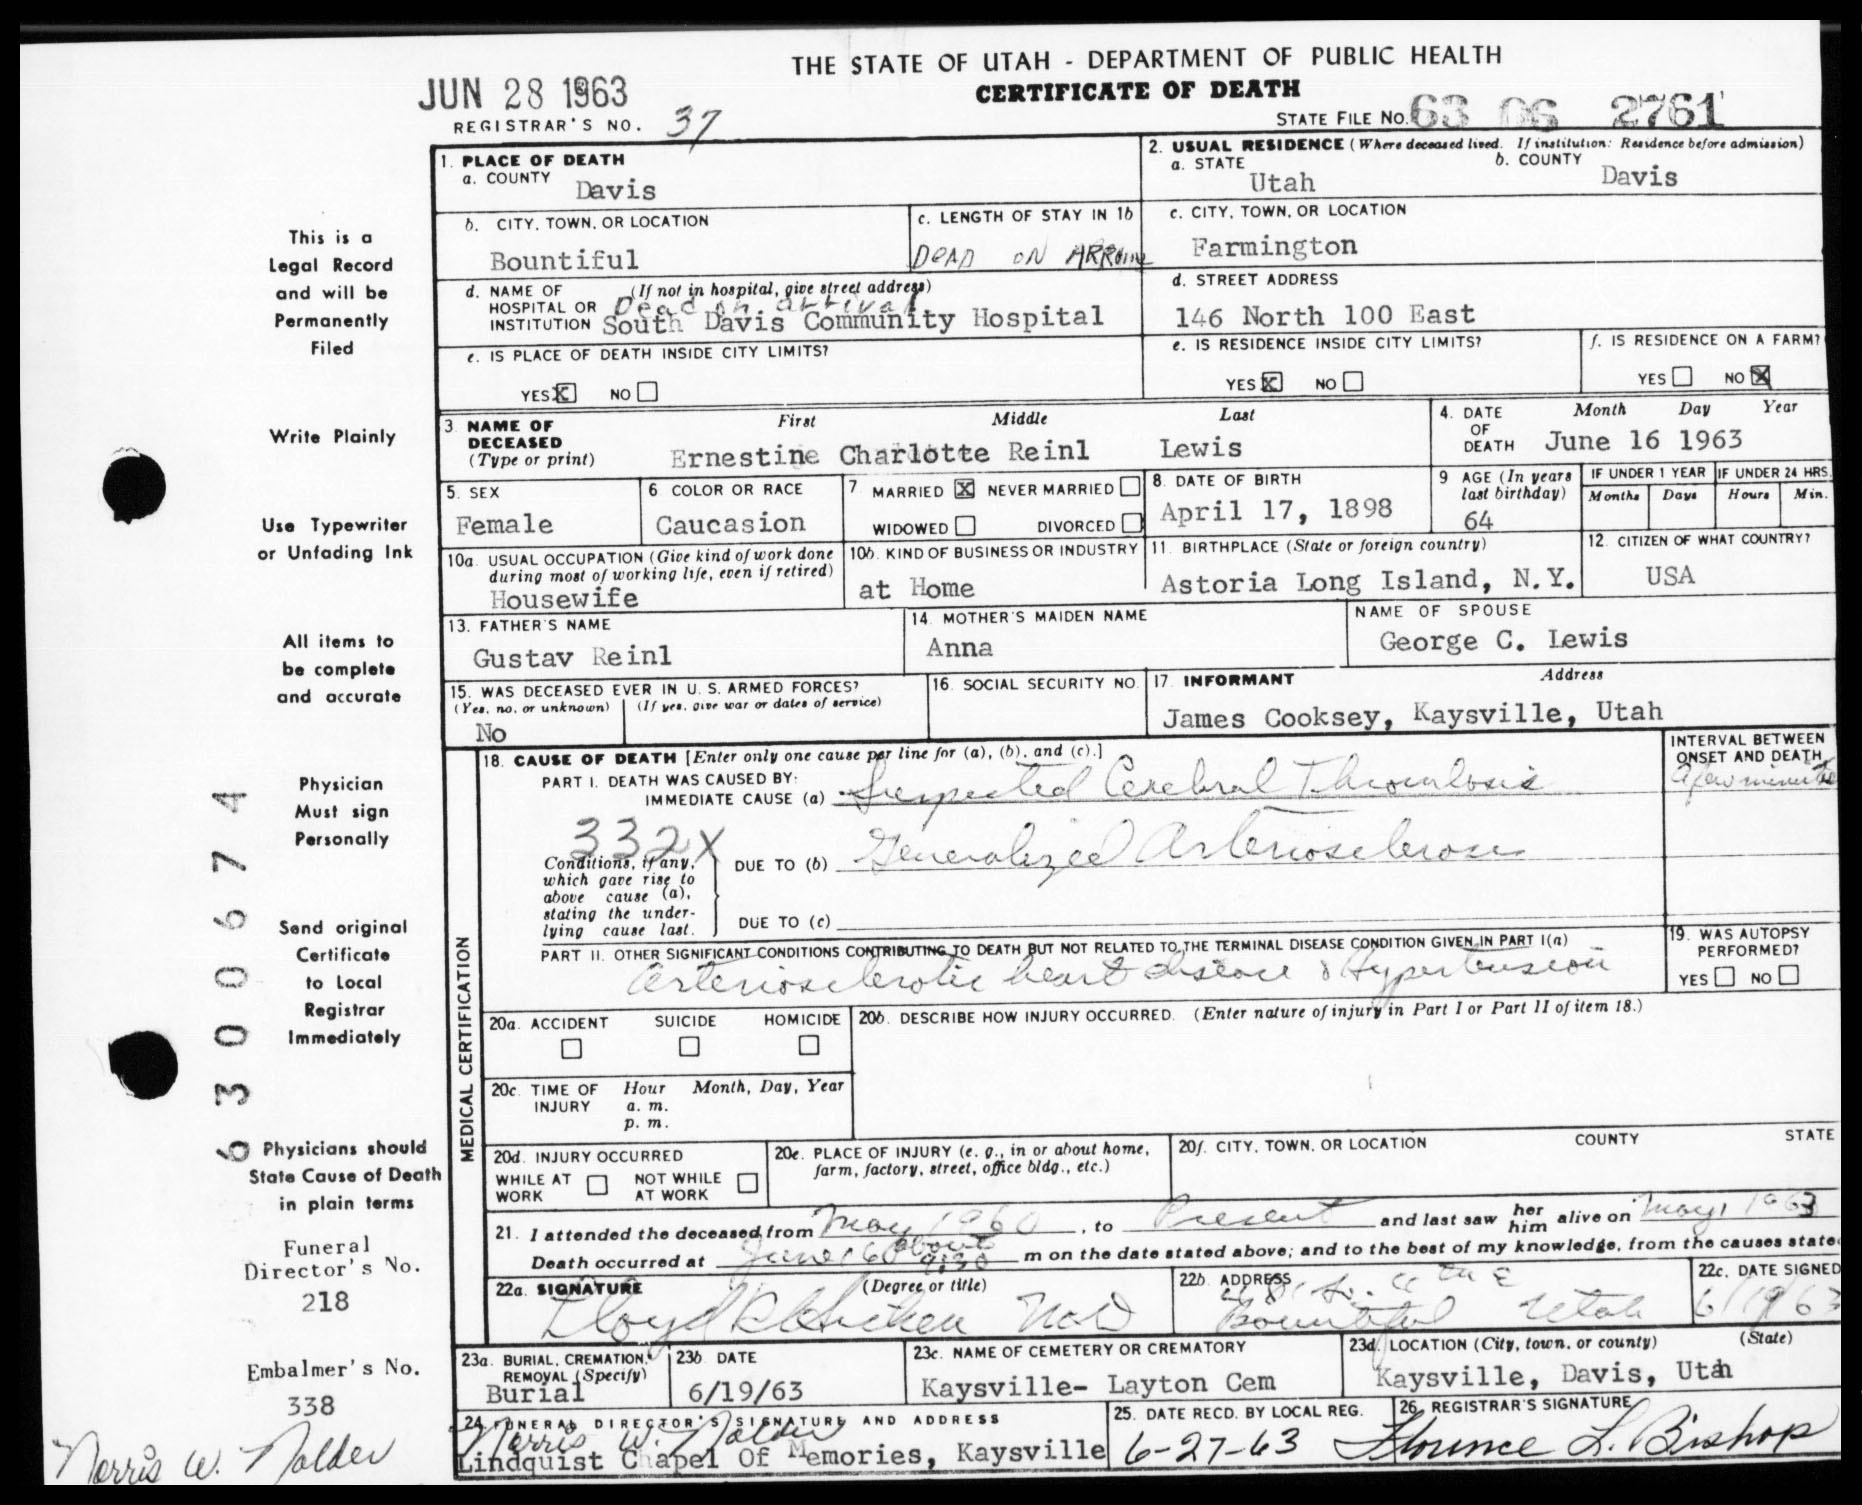 THE STATE OF UTAH - DEPARTMENT OF PUBLIC HEALTH
CERTIFICATE OF DEATH
JUN 28 1963
REGISTRAR'S NO. 37
STATE FILE NO. 63 06 2761
1. PLACE OF DEATH
a. COUNTY Davis
2. USUAL RESIDENCE (Where deceased lived. If institution: Residence before admission)
a. STATE Utah b. COUNTY Davis
b. CITY, TOWN, OR LOCATION Bountiful
c. LENGTH OF STAY IN 1b DEAD ON
c. CITY, TOWN, OR LOCATION Farmington
d. NAME OF HOSPITAL OR INSTITUTION (If not in hospital, give street address)
Dead on arrival
South Davis Community Hospital
d. STREET ADDRESS
146 North 100 East
e. IS PLACE OF DEATH INSIDE CITY LIMITS?
YES X NO
e. IS RESIDENCE INSIDE CITY LIMITS?
YES X NO
f. IS RESIDENCE ON A FARM?
YES NO X
3. NAME OF DECEASED (Type or print)
First Middle Last
Ernestine Charlotte Reinl Lewis
4. DATE OF DEATH Month Day Year
June 16 1963
5. SEX
Female
6 COLOR OR RACE
Caucasion
7 MARRIED X NEVER MARRIED
WIDOWED DIVORCED
8. DATE OF BIRTH
April 17, 1898
9 AGE (In years last birthday)
64
IF UNDER 1 YEAR IF UNDER 24 HRS.
Months Days Hours Min.
10a. USUAL OCCUPATION (Give kind of work done during most of working life, even if retired)
Housewife
10b. KIND OF BUSINESS OR INDUSTRY
at Home
11. BIRTHPLACE (State or foreign country)
Astoria Long Island, N.Y.
12. CITIZEN OF WHAT COUNTRY?
USA
13. FATHER'S NAME
Gustav Reinl
14. MOTHER'S MAIDEN NAME
Anna
NAME OF SPOUSE
George C. Lewis
15. WAS DECEASED EVER IN U. S. ARMED FORCES?
(Yes, no, or unknown) (If yes, give war or dates of service)
No
16. SOCIAL SECURITY NO.
17. INFORMANT Address
James Cooksey, Kaysville, Utah
MEDICAL CERTIFICATION
18. CAUSE OF DEATH [Enter only one cause per line for (a), (b), and (c).]
PART I. DEATH WAS CAUSED BY:
IMMEDIATE CAUSE (a) Suspected Cerebral Thrombosis
INTERVAL BETWEEN ONSET AND DEATH
a few minutes
332X
Conditions, if any, which gave rise to above cause (a), stating the underlying cause last.
DUE TO (b) Generalized Arteriosclerosis
DUE TO (c)
PART II. OTHER SIGNIFICANT CONDITIONS CONTRIBUTING TO DEATH BUT NOT RELATED TO THE TERMINAL DISEASE CONDITION GIVEN IN PART I(a)
Arteriosclerotic heart disease & Hypertension
19. WAS AUTOPSY PERFORMED?
YES NO
20a. ACCIDENT SUICIDE HOMICIDE
20b. DESCRIBE HOW INJURY OCCURRED. (Enter nature of injury in Part I or Part II of item 18.)
20c. TIME OF INJURY Hour Month, Day, Year
a. m.
p. m.
20d. INJURY OCCURRED
WHILE AT WORK NOT WHILE AT WORK
20e. PLACE OF INJURY (e. g., in or about home, farm, factory, street, office bldg., etc.)
20f. CITY, TOWN, OR LOCATION COUNTY STATE
21. I attended the deceased from May 1960, to Present and last saw her him alive on May 1 1963
Death occurred at June 16 about 9:30 m on the date stated above; and to the best of my knowledge, from the causes state
22a. SIGNATURE (Degree or title)
Lloyd
22b. ADDRESS
Bountiful Utah
22c. DATE SIGNED
23a. BURIAL, CREMATION, REMOVAL (Specify)
Burial
23b. DATE
6/19/63
23c. NAME OF CEMETERY OR CREMATORY
Kaysville- Layton Cem
23d. LOCATION (City, town, or county) (State)
Kaysville, Davis, Utah
24. FUNERAL DIRECTOR'S SIGNATURE AND ADDRESS
Norris W. Nalder
Lindquist Chapel Of Memories, Kaysville
25. DATE RECD. BY LOCAL REG.
6-27-63
26. REGISTRAR'S SIGNATURE
Florence L. Bishop
This is a
Legal Record
and will be
Permanently
Filed
Write Plainly
Use Typewriter
or Unfading Ink
All items to
be complete
and accurate
Physician
Must sign
Personally
Send original
Certificate
to Local
Registrar
Immediately
Physicians should
State Cause of Death
in plain terms
Funeral
Director's No.
218
Embalmer's No.
338
Norris W. Nalder
6300674